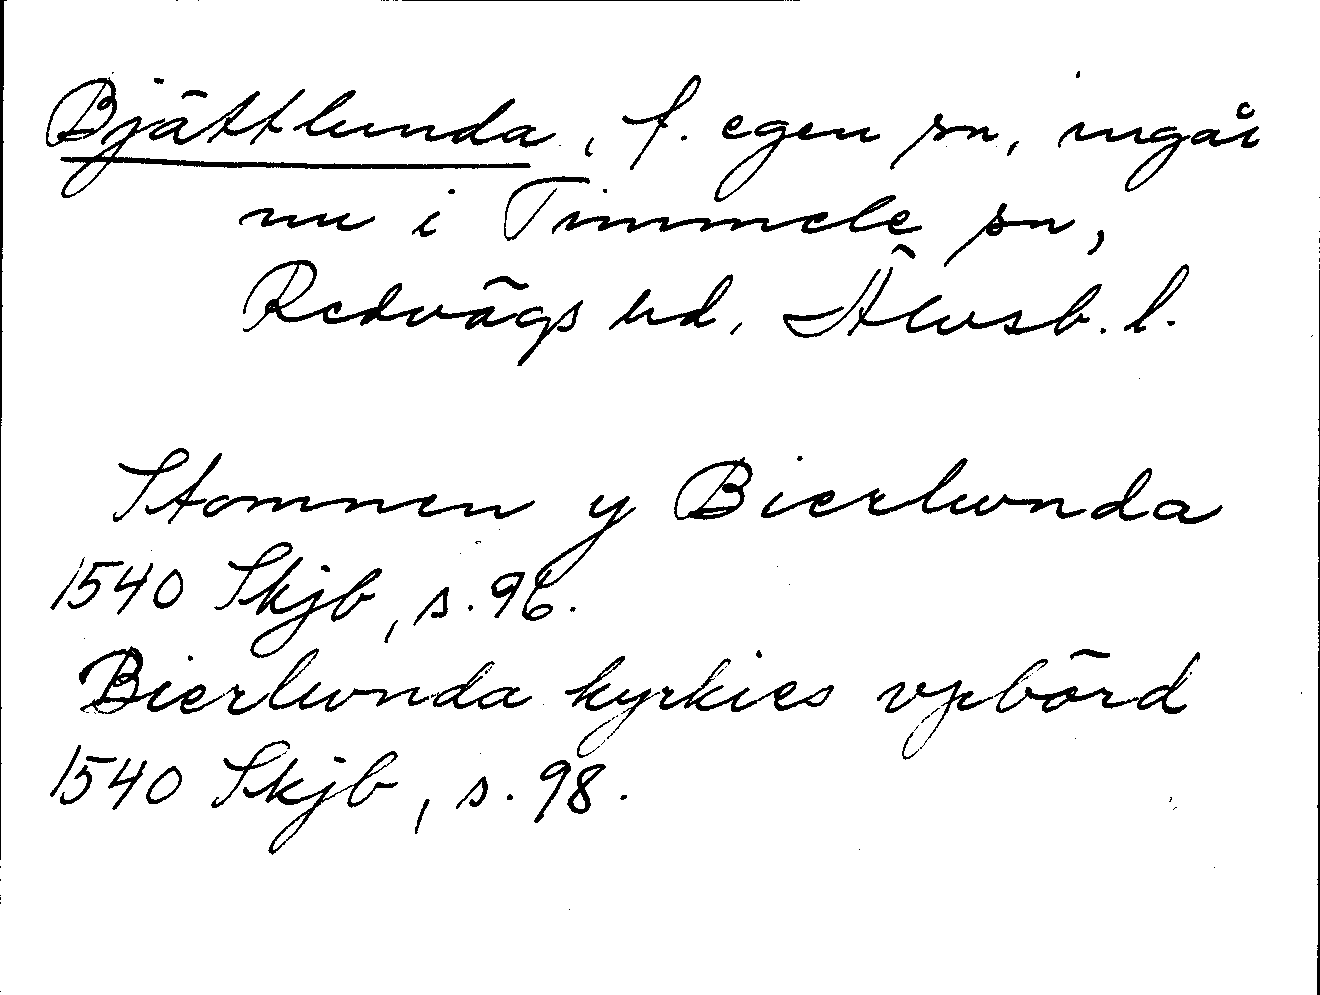 Bjättlunda, f. egen sn, ingår
nu i Timmele sn,
Redvägs hd, Älvsb. l.
Stomnen y Bierlwnda
1540 Skjb, s. 96.
Bierlwnda kyrkies vpbörd
1540 Skjb, s. 98.